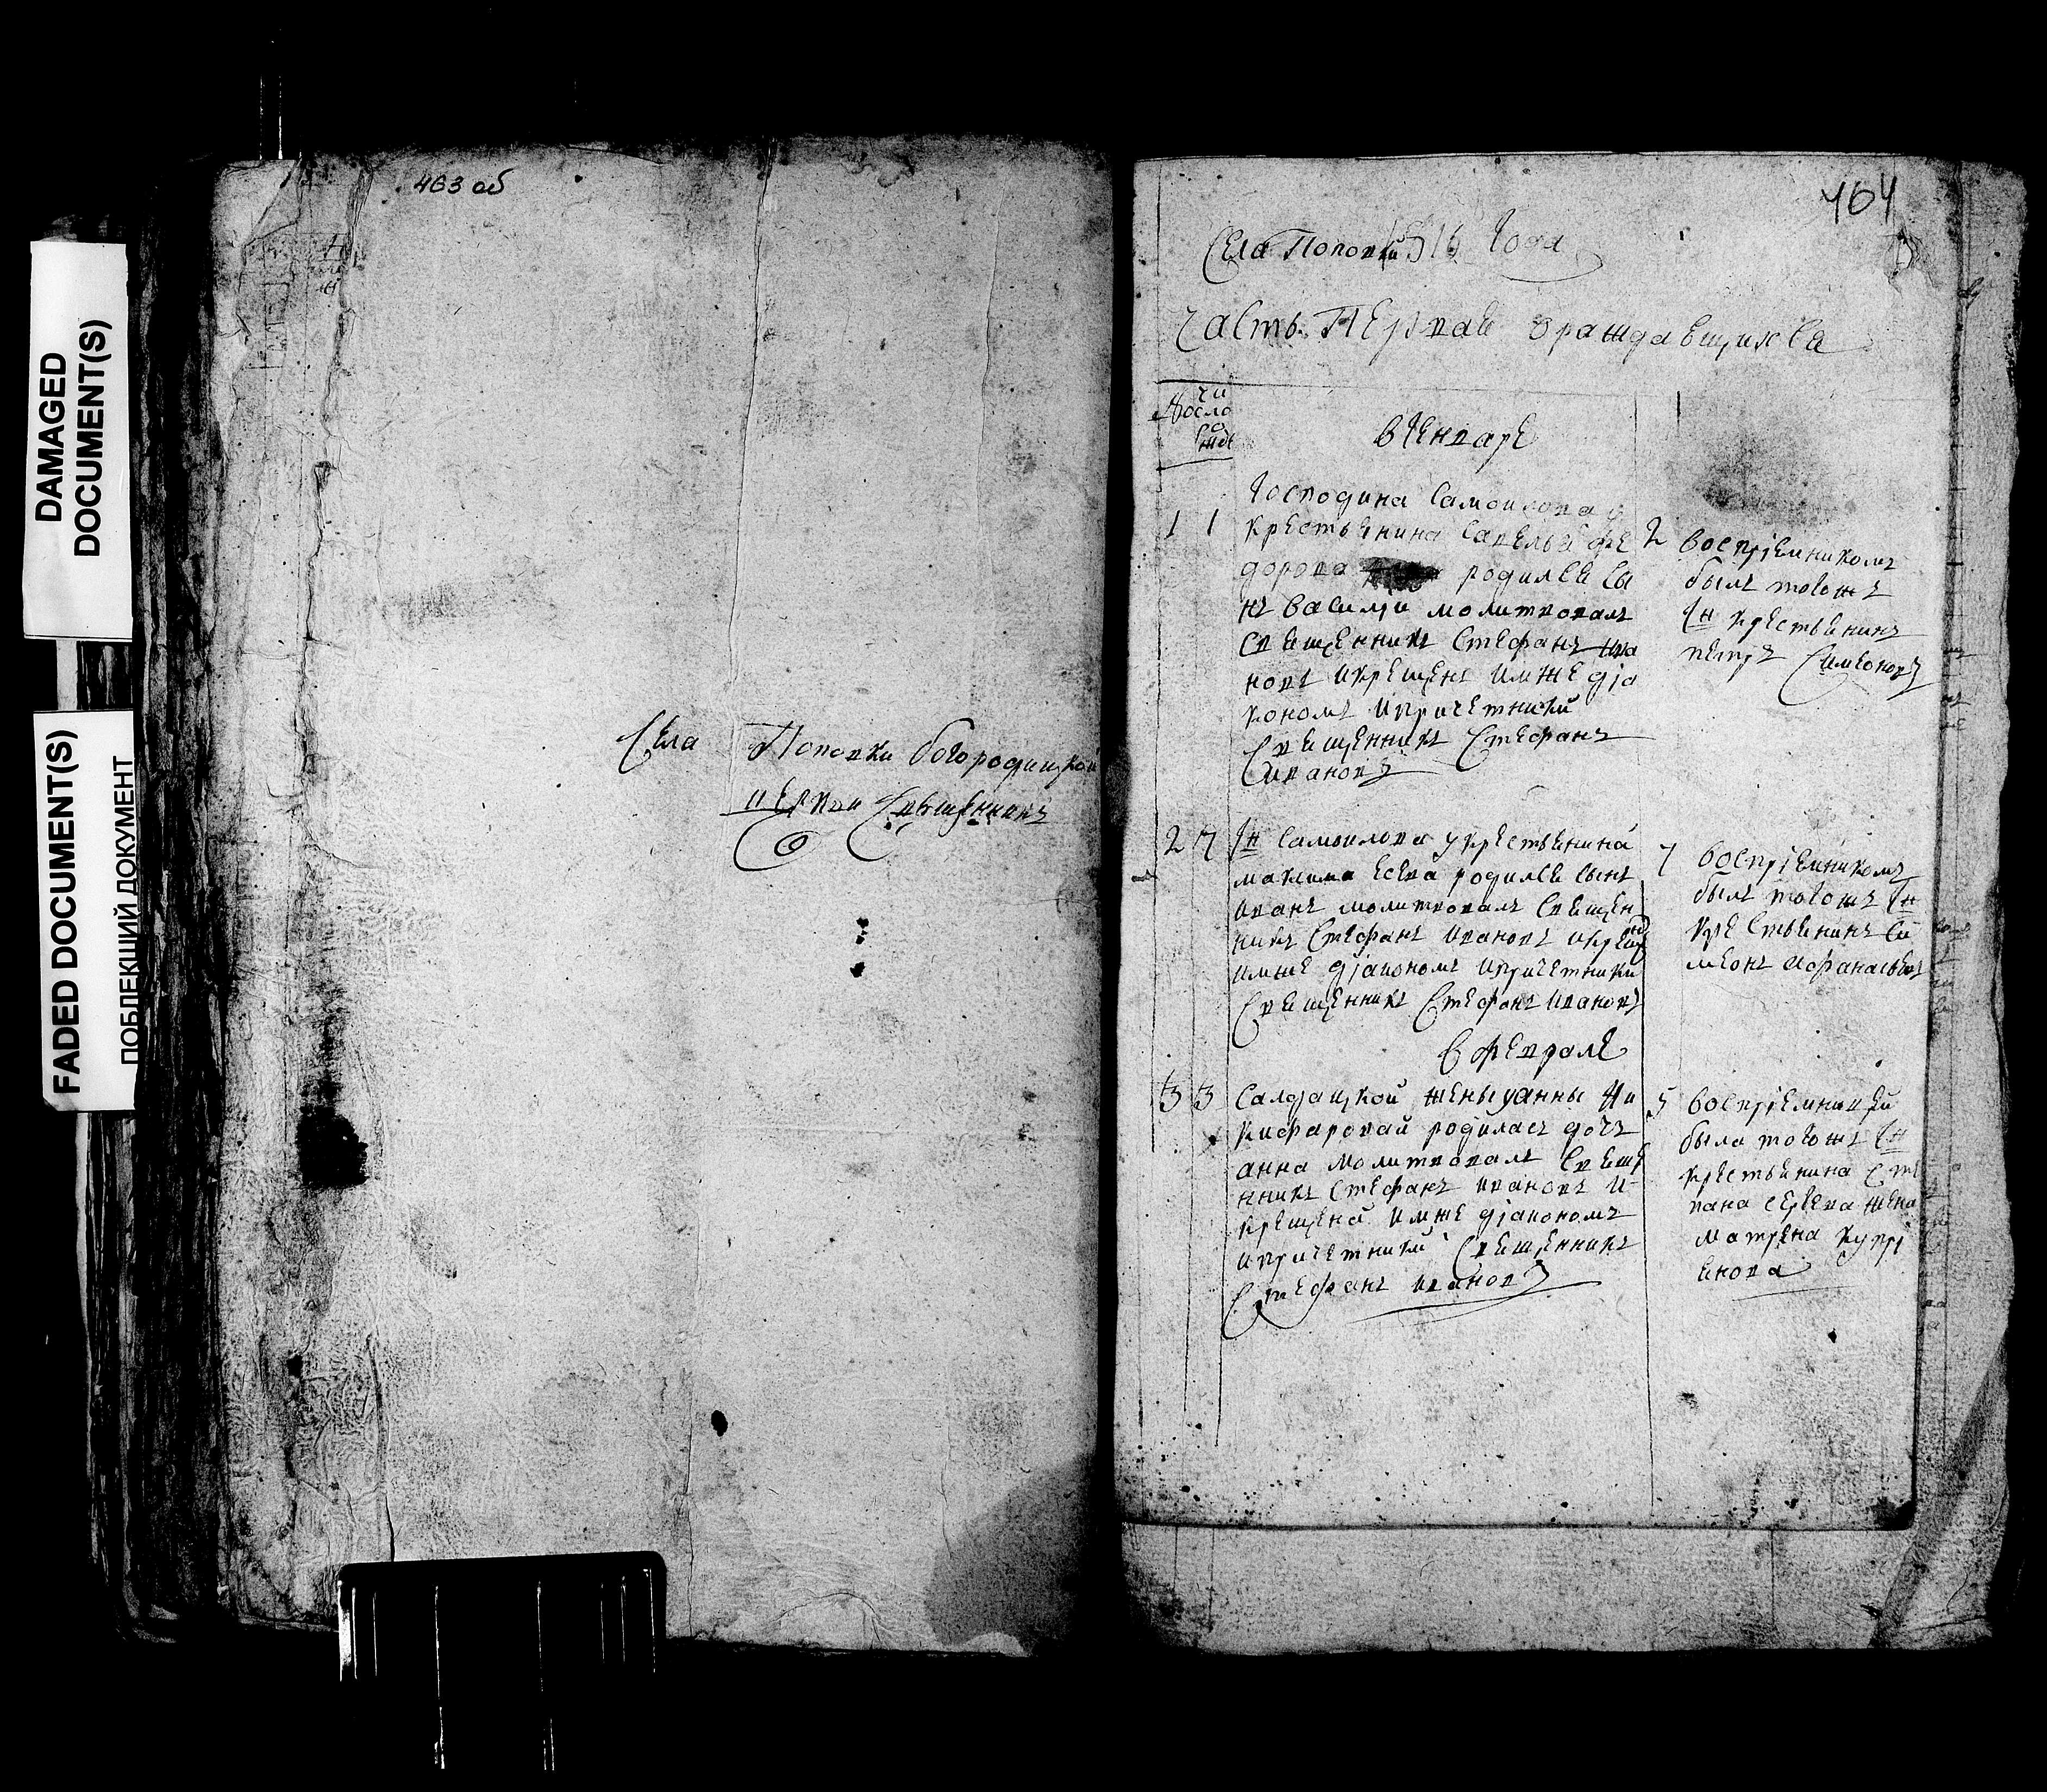 DAMAGED
DOCUMENT(S)
FADED DOCUMENT(S)
ПОБЛЕКШИЙ ДОКУМЕНТ
463 об
Села Поповки богородицкой
церкви Священникъ
464
Села Поповки года
часть Первая ораждающихся
Чи
сло
вгенваре
Господина Самоилова у
1 1 крестьянина Савелья Фе
дорова родился сы
нъ Василiи молитвовалъ
Священникъ Стефанъ ива
новъ икрещенъ имже дiа
кономъ ипричетники
Священникъ Стефанъ
Ивановъ
2 воспрiемникомъ
былъ тогожъ
Гн крестьянинъ
петръ Симеоновъ
2 7 Гн Самоилова укрестьянина
родился сынъ
иванъ молитвовалъ Священ
никъ Стефанъ ивановъ икрещенъ
имже дiакономъ ипричетники
Священникъ Стефанъ ивановъ
7 воспрiемникомъ
былъ тогожъ Гн
крестьянинъ Си
меонъ Афанасьевъ
в февралѣ
3 3 Салдацкой женыуанны Ни
кифаровай родилась дочь
анна молитвовалъ Свяще
нникъ Стефанъ ивановъ и
крещена имже дiакономъ
ипричетники Священникъ
Стефанъ ивановъ
5 воспрiемницей
была тогожъ Гн
крестьянина Сте
пана жена
матрена купрi
янова